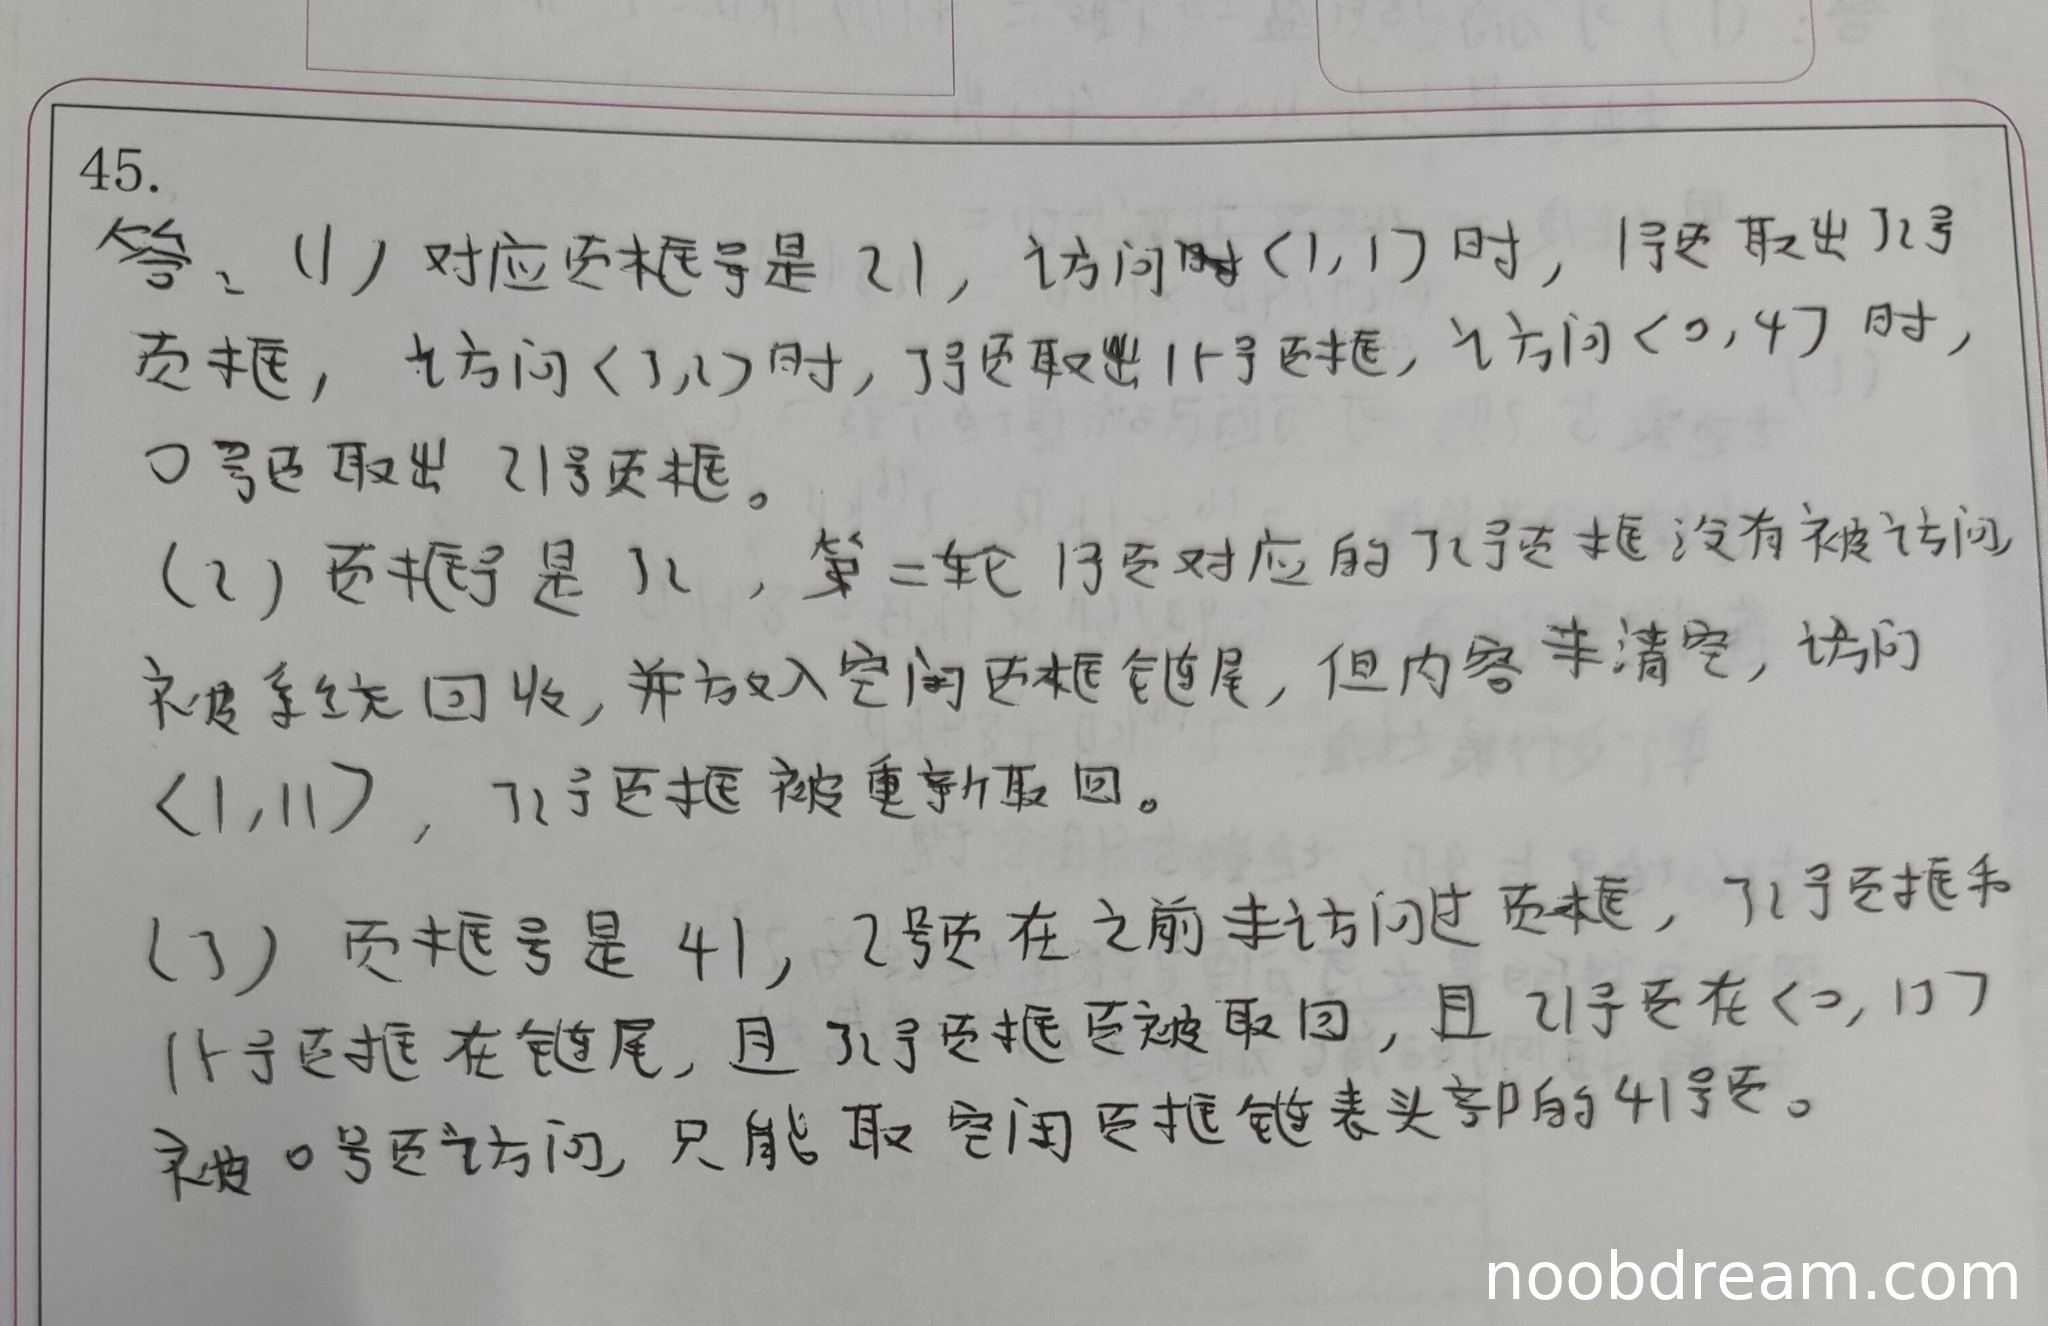 45.
答、(1) 对应页框号是 21，访问<1,1>时，1号页取出32号
页框，访问<3,2>时，3号页取出15号页框，访问<0,4>时，
0号页取出 21号页框。
(2) 页框号是 32，第二轮 1号页对应的32号页框没有被访问，
被系统回收，并放入空闲页框链尾，但内容未清空，访问
<1,11>，32号页框被重新取回。
(3) 页框号是 41，2号页在之前未访问过页框，32号页框和
15号页框在链尾，且32号页框页被取回，且 21号页在<0,13>
被0号页访问，只能取空闲页框链表头部的41号页。
noobdream.com